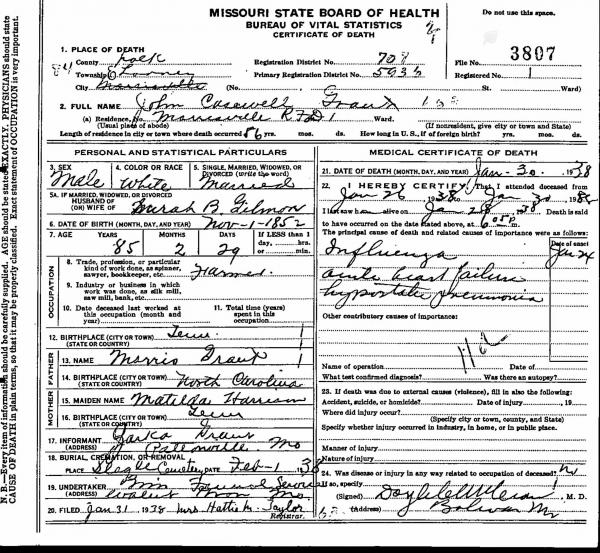 MISSOURI STATE BOARD OF HEALTH
BUREAU OF VITAL STATISTICS
CERTIFICATE OF DEATH
Do not use this space.
1. PLACE OF DEATH
County Polk
Registration District No. 708
File No. 3807
Township
Primary Registration District No. 5933
Registered No. 1
City Morrisville (No. St. Ward)
2. FULL NAME John Casewell Grant
(a) Residence. No. Morrisville R.F.D. 1 Ward.
(Usual place of abode)
(If nonresident, give city or town and State)
Length of residence in city or town where death occurred 56 yrs. mos. ds. How long in U. S., if of foreign birth? yrs. mos. ds.
PERSONAL AND STATISTICAL PARTICULARS
3. SEX
Male
4. COLOR OR RACE
White
5. SINGLE, MARRIED, WIDOWED, OR
DIVORCED (write the word)
Married
5A. IF MARRIED, WIDOWED, OR DIVORCED
HUSBAND OF
(OR) WIFE OF Sarah B. Gilmon
6. DATE OF BIRTH (MONTH, DAY, AND YEAR) Nov-1-1852
7. AGE YEARS MONTHS DAYS If LESS than 1
day, hrs.
or min.
85 2 29
OCCUPATION
8. Trade, profession, or particular
kind of work done, as spinner,
sawyer, bookkeeper, etc. Farmer
9. Industry or business in which
work was done, as silk mill,
saw mill, bank, etc.
10. Date deceased last worked at
this occupation (month and
year)
11. Total time (years)
spent in this
occupation
12. BIRTHPLACE (CITY OR TOWN) Tenn
(STATE OR COUNTRY)
FATHER
13. NAME Morris Grant
14. BIRTHPLACE (CITY OR TOWN) North Carolina
(STATE OR COUNTRY)
MOTHER
15. MAIDEN NAME Matilda Harrison
16. BIRTHPLACE (CITY OR TOWN) Tenn
(STATE OR COUNTRY)
17. INFORMANT Grant
(ADDRESS) Mo
18. BURIAL, CREMATION, OR REMOVAL
PLACE Slagle Cemetery DATE Feb-1 38
19. UNDERTAKER Funeral Service
(ADDRESS) Mo.
20. FILED Jan 31 1938 Mrs Hattie M. Taylor
Registrar.
MEDICAL CERTIFICATE OF DEATH
21. DATE OF DEATH (MONTH, DAY, AND YEAR) Jan-30- 1938
22. I HEREBY CERTIFY, That I attended deceased from
Jan 26 1938, to Jan 30 1938
I last saw h alive on Jan 28 1938 Death is said
to have occurred on the date stated above, at 6:05 P m.
The principal cause of death and related causes of importance were as follows:
Date of onset
Influenza Jan 24
acute heart failure
hypostatic pneumonia
Other contributory causes of importance:
11a
Name of operation Date of
What test confirmed diagnosis? Was there an autopsy?
23. If death was due to external causes (violence), fill in also the following:
Accident, suicide, or homicide? Date of injury , 19
Where did injury occur?
(Specify city or town, county, and State)
Specify whether injury occurred in industry, in home, or in public place.
Manner of injury
Nature of injury
24. Was disease or injury in any way related to occupation of deceased? No
If so, specify
(Signed) Doyle C. McCraw, M. D.
(Address) Bolivar Mo
N. B.—Every item of information should be carefully supplied. AGE should be stated EXACTLY. PHYSICIANS should state
CAUSE OF DEATH in plain terms, so that it may be properly classified. Exact statement of OCCUPATION is very important.